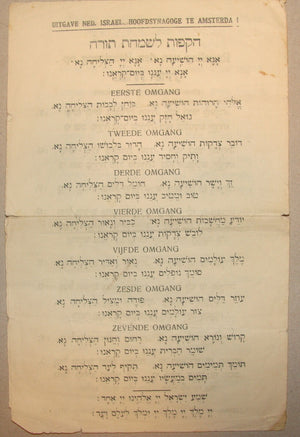 UITGAVE NED. ISRAEL. HOOFDSYNAGOGE TE AMSTERDA
הקפות לשמחת תורה
אָנָּא יְיָ הוֹשִׁיעָה נָּא׃ אָנָּא יְיָ הַצְלִיחָה נָא׃
אָנָּא יְיָ עֲנֵנוּ בְיוֹם־קָרְאֵנוּ׃
EERSTE OMGANG
אֱלֹהֵי הָרוּחוֹת הוֹשִׁיעָה נָּא. בּוֹחֵן לְבָבוֹת הַצְלִיחָה נָא.
גּוֹאֵל חָזָק עֲנֵנוּ בְיוֹם־קָרְאֵנוּ׃
TWEEDE OMGANG
דּוֹבֵר צְדָקוֹת הוֹשִׁיעָה נָּא. הָדוּר בִּלְבוּשׁוֹ הַצְלִיחָה נָא.
וָתִיק וְחָסִיד עֲנֵנוּ בְיוֹם־קָרְאֵנוּ׃
DERDE OMGANG
זַךְ וְיָשָׁר הוֹשִׁיעָה נָּא. חוֹמֵל דַּלִּים הַצְלִיחָה נָא.
טוֹב וּמֵטִיב עֲנֵנוּ בְיוֹם־קָרְאֵנוּ׃
VIERDE OMGANG
יוֹדֵעַ מַחֲשָׁבוֹת הוֹשִׁיעָה נָּא. כַּבִּיר וְנָאוֹר הַצְלִיחָה נָא.
לוֹבֵשׁ צְדָקוֹת עֲנֵנוּ בְיוֹם־קָרְאֵנוּ׃
VIJFDE OMGANG
מֶלֶךְ עוֹלָמִים הוֹשִׁיעָה נָּא. נָאוֹר וְאַדִּיר הַצְלִיחָה נָא.
סוֹמֵךְ נוֹפְלִים עֲנֵנוּ בְיוֹם־קָרְאֵנוּ׃
ZESDE OMGANG
עוֹזֵר דַּלִּים הוֹשִׁיעָה נָּא. פּוֹדֶה וּמַצִּיל הַצְלִיחָה נָא.
צוּר עוֹלָמִים עֲנֵנוּ בְיוֹם־קָרְאֵנוּ׃
ZEVENDE OMGANG
קָדוֹשׁ וְנוֹרָא הוֹשִׁיעָה נָּא. רַחוּם וְחַנּוּן הַצְלִיחָה נָא.
שׁוֹמֵר הַבְּרִית עֲנֵנוּ בְיוֹם־קָרְאֵנוּ׃
תּוֹמֵךְ תְּמִימִים הוֹשִׁיעָה נָּא. תַּקִּיף לָעַד הַצְלִיחָה נָא.
תָּמִים בְּמַעֲשָׂיו עֲנֵנוּ בְיוֹם־קָרְאֵנוּ׃
שְׁמַע יִשְׂרָאֵל יְיָ אֱלֹהֵינוּ יְיָ אֶחָד׃
יְיָ מֶלֶךְ יְיָ מָלָךְ יְיָ יִמְלֹךְ לְעֹלָם וָעֶד׃